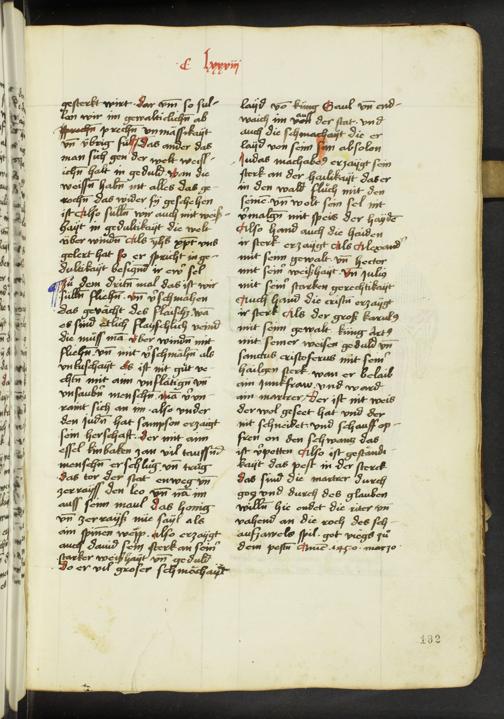 C lxxxvij
gesterkt wirt. Dar vm̄ so sul-
len wir im gewalticlichn̄ ab
prechn̄ vnmässikayt
vn̄ vbrig das ander das
man sich gen der welt weiss-
ichn̄ halt in geduld in die
weissn̄ habn̄ mit alles das ge-
rechn̄ das wider sy geschehen
ist Also sulln̄ wir auch mit weiß-
hayt in gedultikayt die welt
vber windn̄ Als vns
gelert hat so er spricht in ge-
dultikayt besicznd ir ewr sel
Zu dem dritn̄ mal das ist wir
sulln̄ fliehn̄ vn̄ v̄schmahen
das des flaisch wan̄
es sind etlich flayschlich veind
die muß mā vber windn̄ mit
fliehn̄ vn̄ mit v̄schmahn̄ als
vnkuschayt Es ist nit gut ve
echtn̄ mit aim vnflätign̄ vn̄
vnsaubn̄ menschn̄
ramt sich an im. Also vnder
den Judn̄ hat sampson erzaigt
sein herschaft. der mit aim
essel kinbaken zan vil taussnd
menschn̄ erschlug vn̄ trug
das tor der stat enweg vn̄
zerrayss den leo vn̄ nā im
auss seim maul das honig
vn̄ zerrayss nie sayl als
ain spinen wepp. Also erzaygt
auch dauid sein sterk an seim̄
starker weißhayt vn̄ geduld
do er vil groser schmächayt
layd vō kunig Saul vn̄ end-
waich im auß der stat. vnd
auch die schmachayt die er
layd von seim sun absolon
Judas machabeo erzaygt sein
sterk an der hailikayt das er
in den wald fluch mit den
seinē vn̄ wolt sein sel nit
v̄malgn̄ mit speis der hayde
Also hand auch die haiden
ir sterk erzaygt Als Alexand̄
mit seim gewalt vn̄ hector
mit seim̄ weißhayt Vn̄ Julio
mit seim̄ starken gerechtikayt
Auch hand die cristn̄ erzaygt
ir sterk Als der groß karulo
mit seim gewalt kunig Arto
mit seiner weisen geduld vn̄
sanctus cristoferus mit seim̄
hailgen sterk wan er belaib
ain junkfraw vnd ward
ain martrer. Der ist nit weis
der wol geseet hat vnd der
nit schneidet vnd schauff op-
fren an den schwanz das
ist v̄potten Also ist gestände
kayt das pest in der sterk
das sind die martrer durch
gog vnd durch des glauben
willn̄ hie endet die riter vn̄
vahend an die roch des sch-
aufzavels spil. got wegs zu
dem pestn̄ Anno 1450. marzo
182